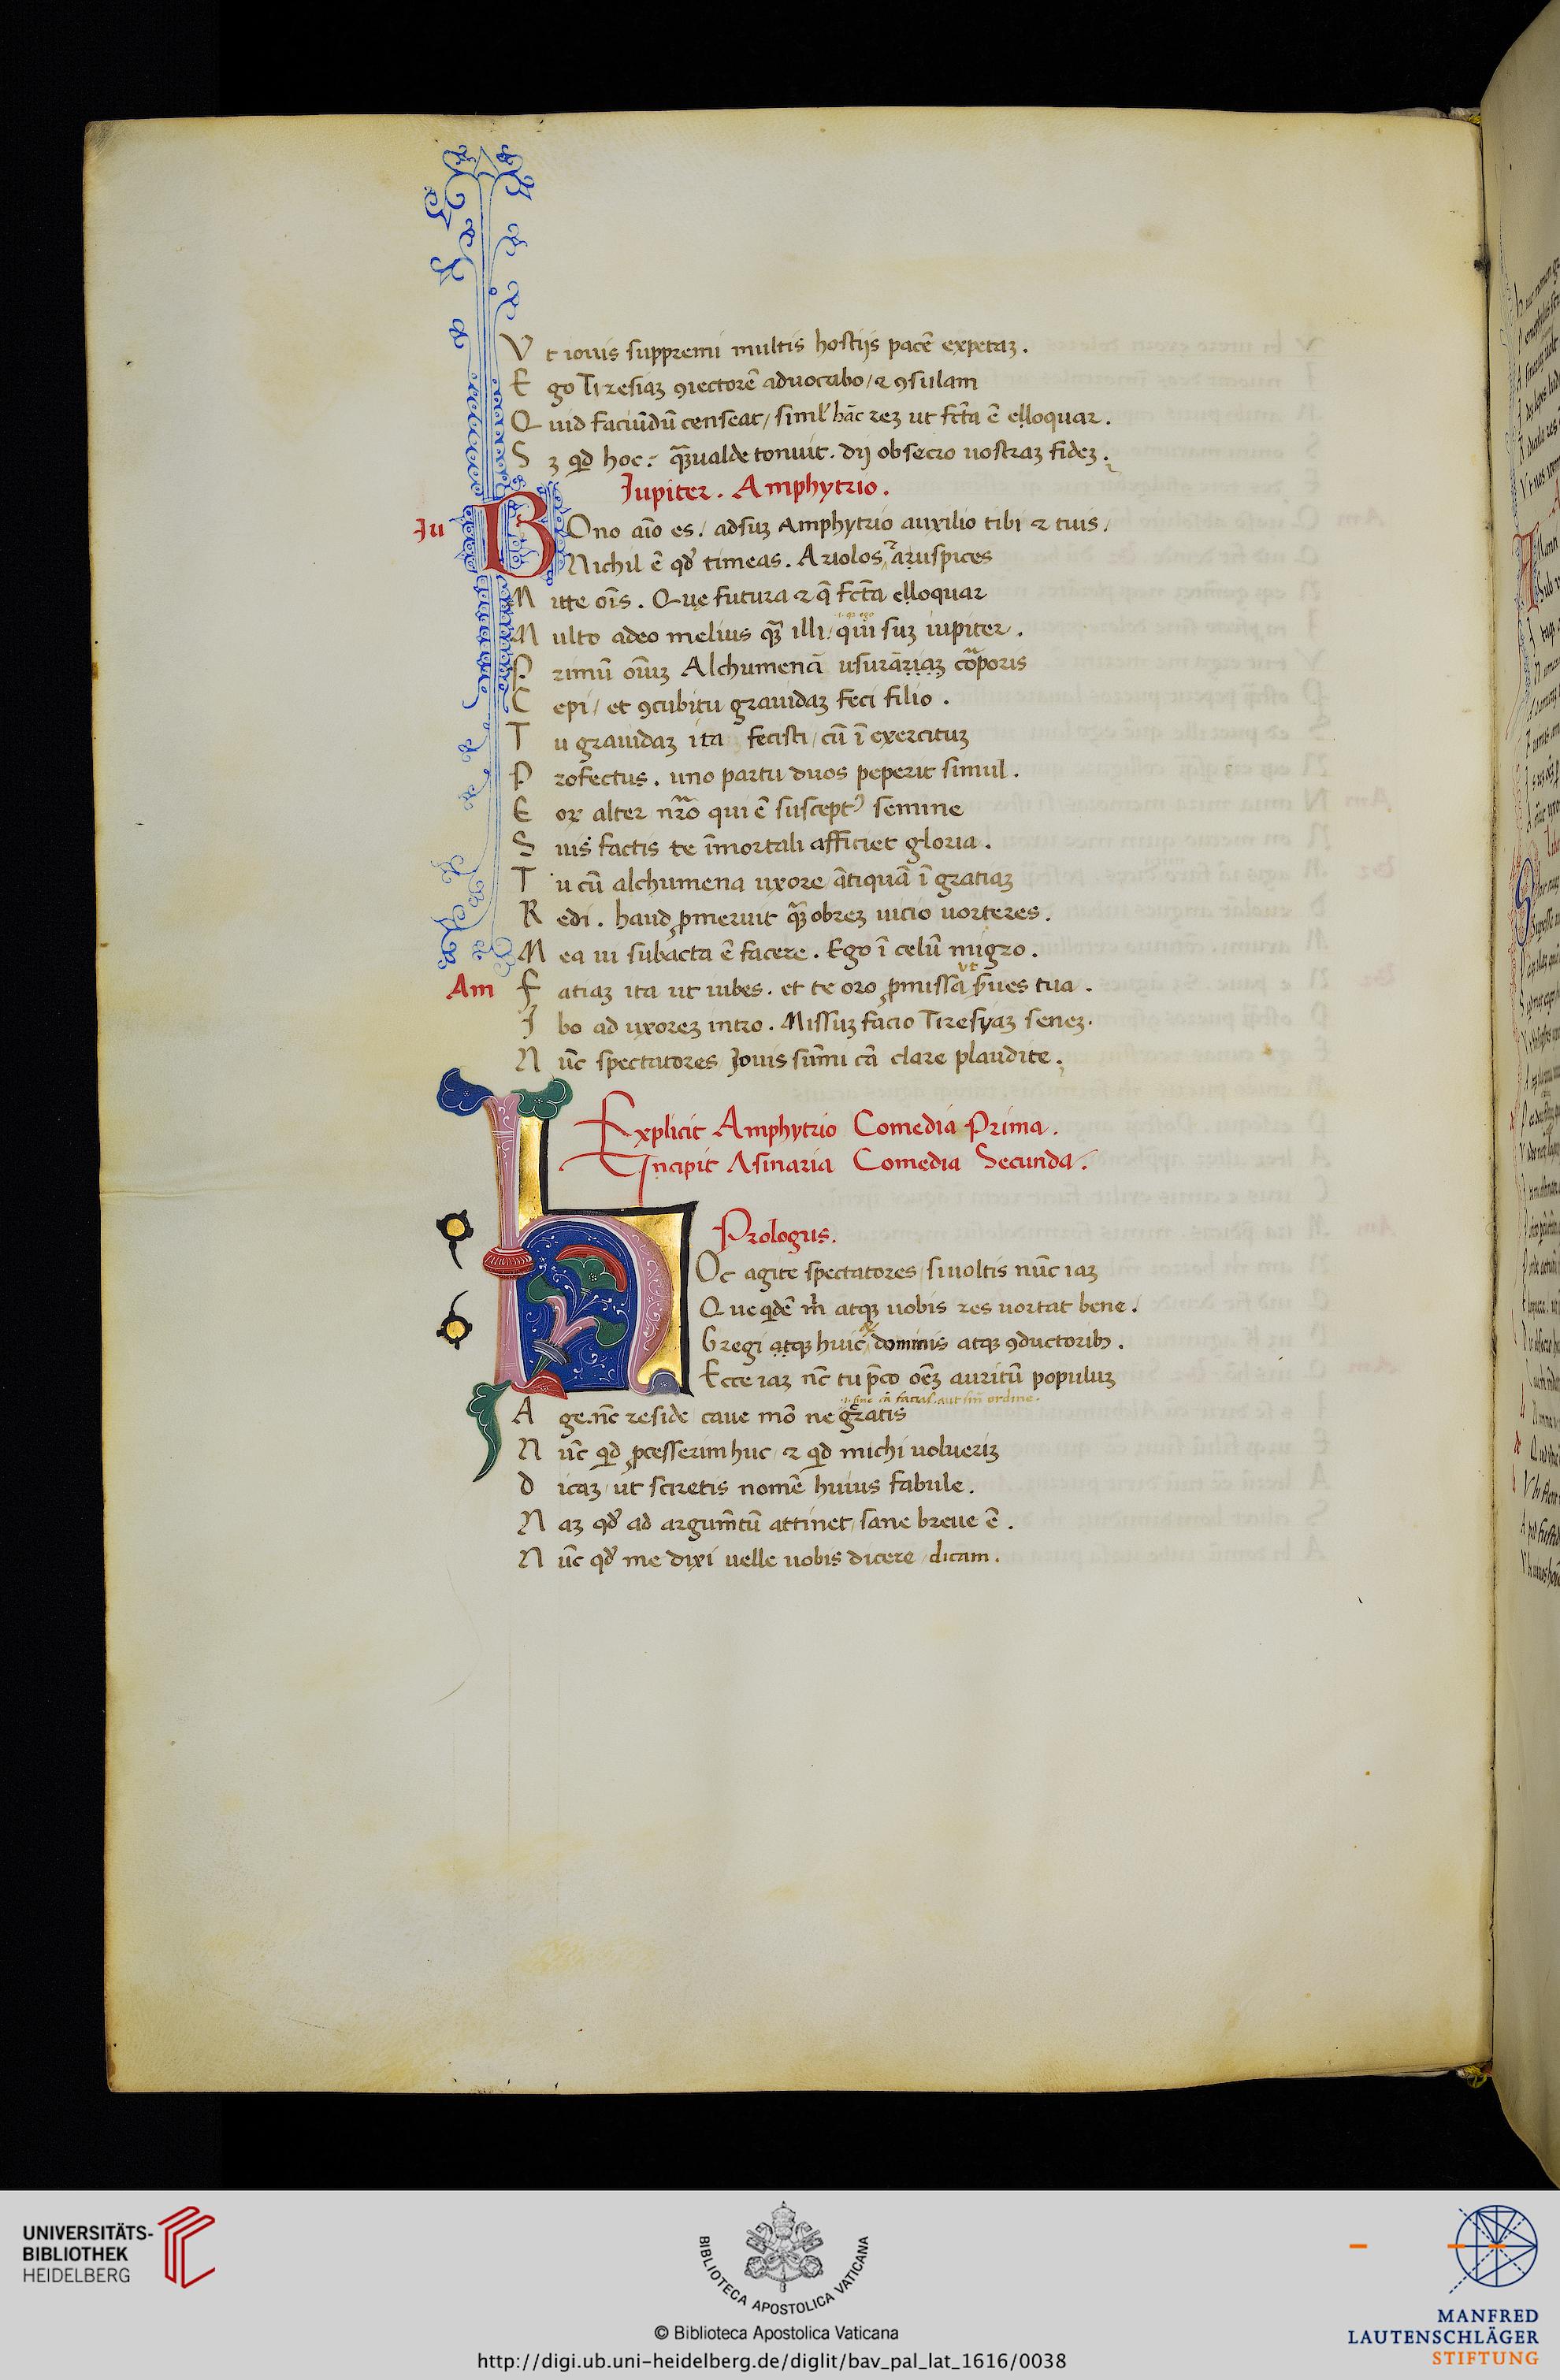 Vt iouis suppremi multis hostijs pacē expetaʒ.
Ego Tiresiaʒ ꝯiectorē aduocabo / ⁊ ꝯsulam
Quid faciūdū censeat / simĺ hāc reʒ ut fc̄ta ē elloquar.
Sʒ qd hoc: qʒ̄ualde tonuit. dij obsecro uostraʒ fideʒ.
Iupiter. Amphytrio.
Iu BOno aīo es / adsuʒ Amphytrio auxilio tibi ⁊ tuis /
Nichil ē qđ timeas. Ariolos ⁊ aruspices
Mitte oīs. Que futura ⁊ q̄ fc̄ta elloquar
Multo adeo melius qʒ̄ illi / qui suʒ iupiter.
Primū oīuʒ Alchumenā usurāriaʒ corporis
Cepi / et ꝯcubitu grauidaʒ feci filio.
Tu grauidaʒ ita fecisti / cū ī exercituʒ
Profectus. uno partu duos peperit simul.
Eoꝝ alter nr̄o qui ē suscept᾽ semine
Suis factis te īmortali afficiet gloria.
Tu cū alchumena uxore / ātiquā ī gratiaʒ
Redi. haud ꝓmeruit qʒ̄ obreʒ uicio uorteres.
Mea ui subacta ē facere. Ego ī celū migro.
Am Fatiaʒ ita ut iubes. et te oro ꝓmissa ut s̄ues tua.
Ibo ad uxoreʒ intro. Missuʒ facio Tiresyaʒ seneʒ.
Nūc spectatores Iouis sūmi cā clare plaudite.
Explicit Amphytrio Comedia Prima.
Incipit Asinaria Comedia Secunda.
Prologus.
hOc agite spectatores / siuoltis nūc iaʒ
Queqdē m̄ atqʒ uobis res uortat bene.
Gregi atqʒ huic dominis atqʒ ꝯductoribʒ.
Ecce iaʒ nc̄ tu p̄co oēʒ auritū populuʒ
Age.nc̄ reside / caue mō ne gratis
Nūc qd ꝓcesserim huc / ⁊ qd michi uolueriʒ
Dicaʒ / ut sciretis nomē huius fabule.
Naʒ qđ ad argum̄tū attinet / sane breue ē.
Nūc qđ me dixi uelle uobis dicere / dicam.
UNIVERSITÄTS-
BIBLIOTHEK
HEIDELBERG
BIBLIOTECA APOSTOLICA VATICANA
© Biblioteca Apostolica Vaticana
http://digi.ub.uni-heidelberg.de/diglit/bav_pal_lat_1616/0038
MANFRED
LAUTENSCHLÄGER
STIFTUNG